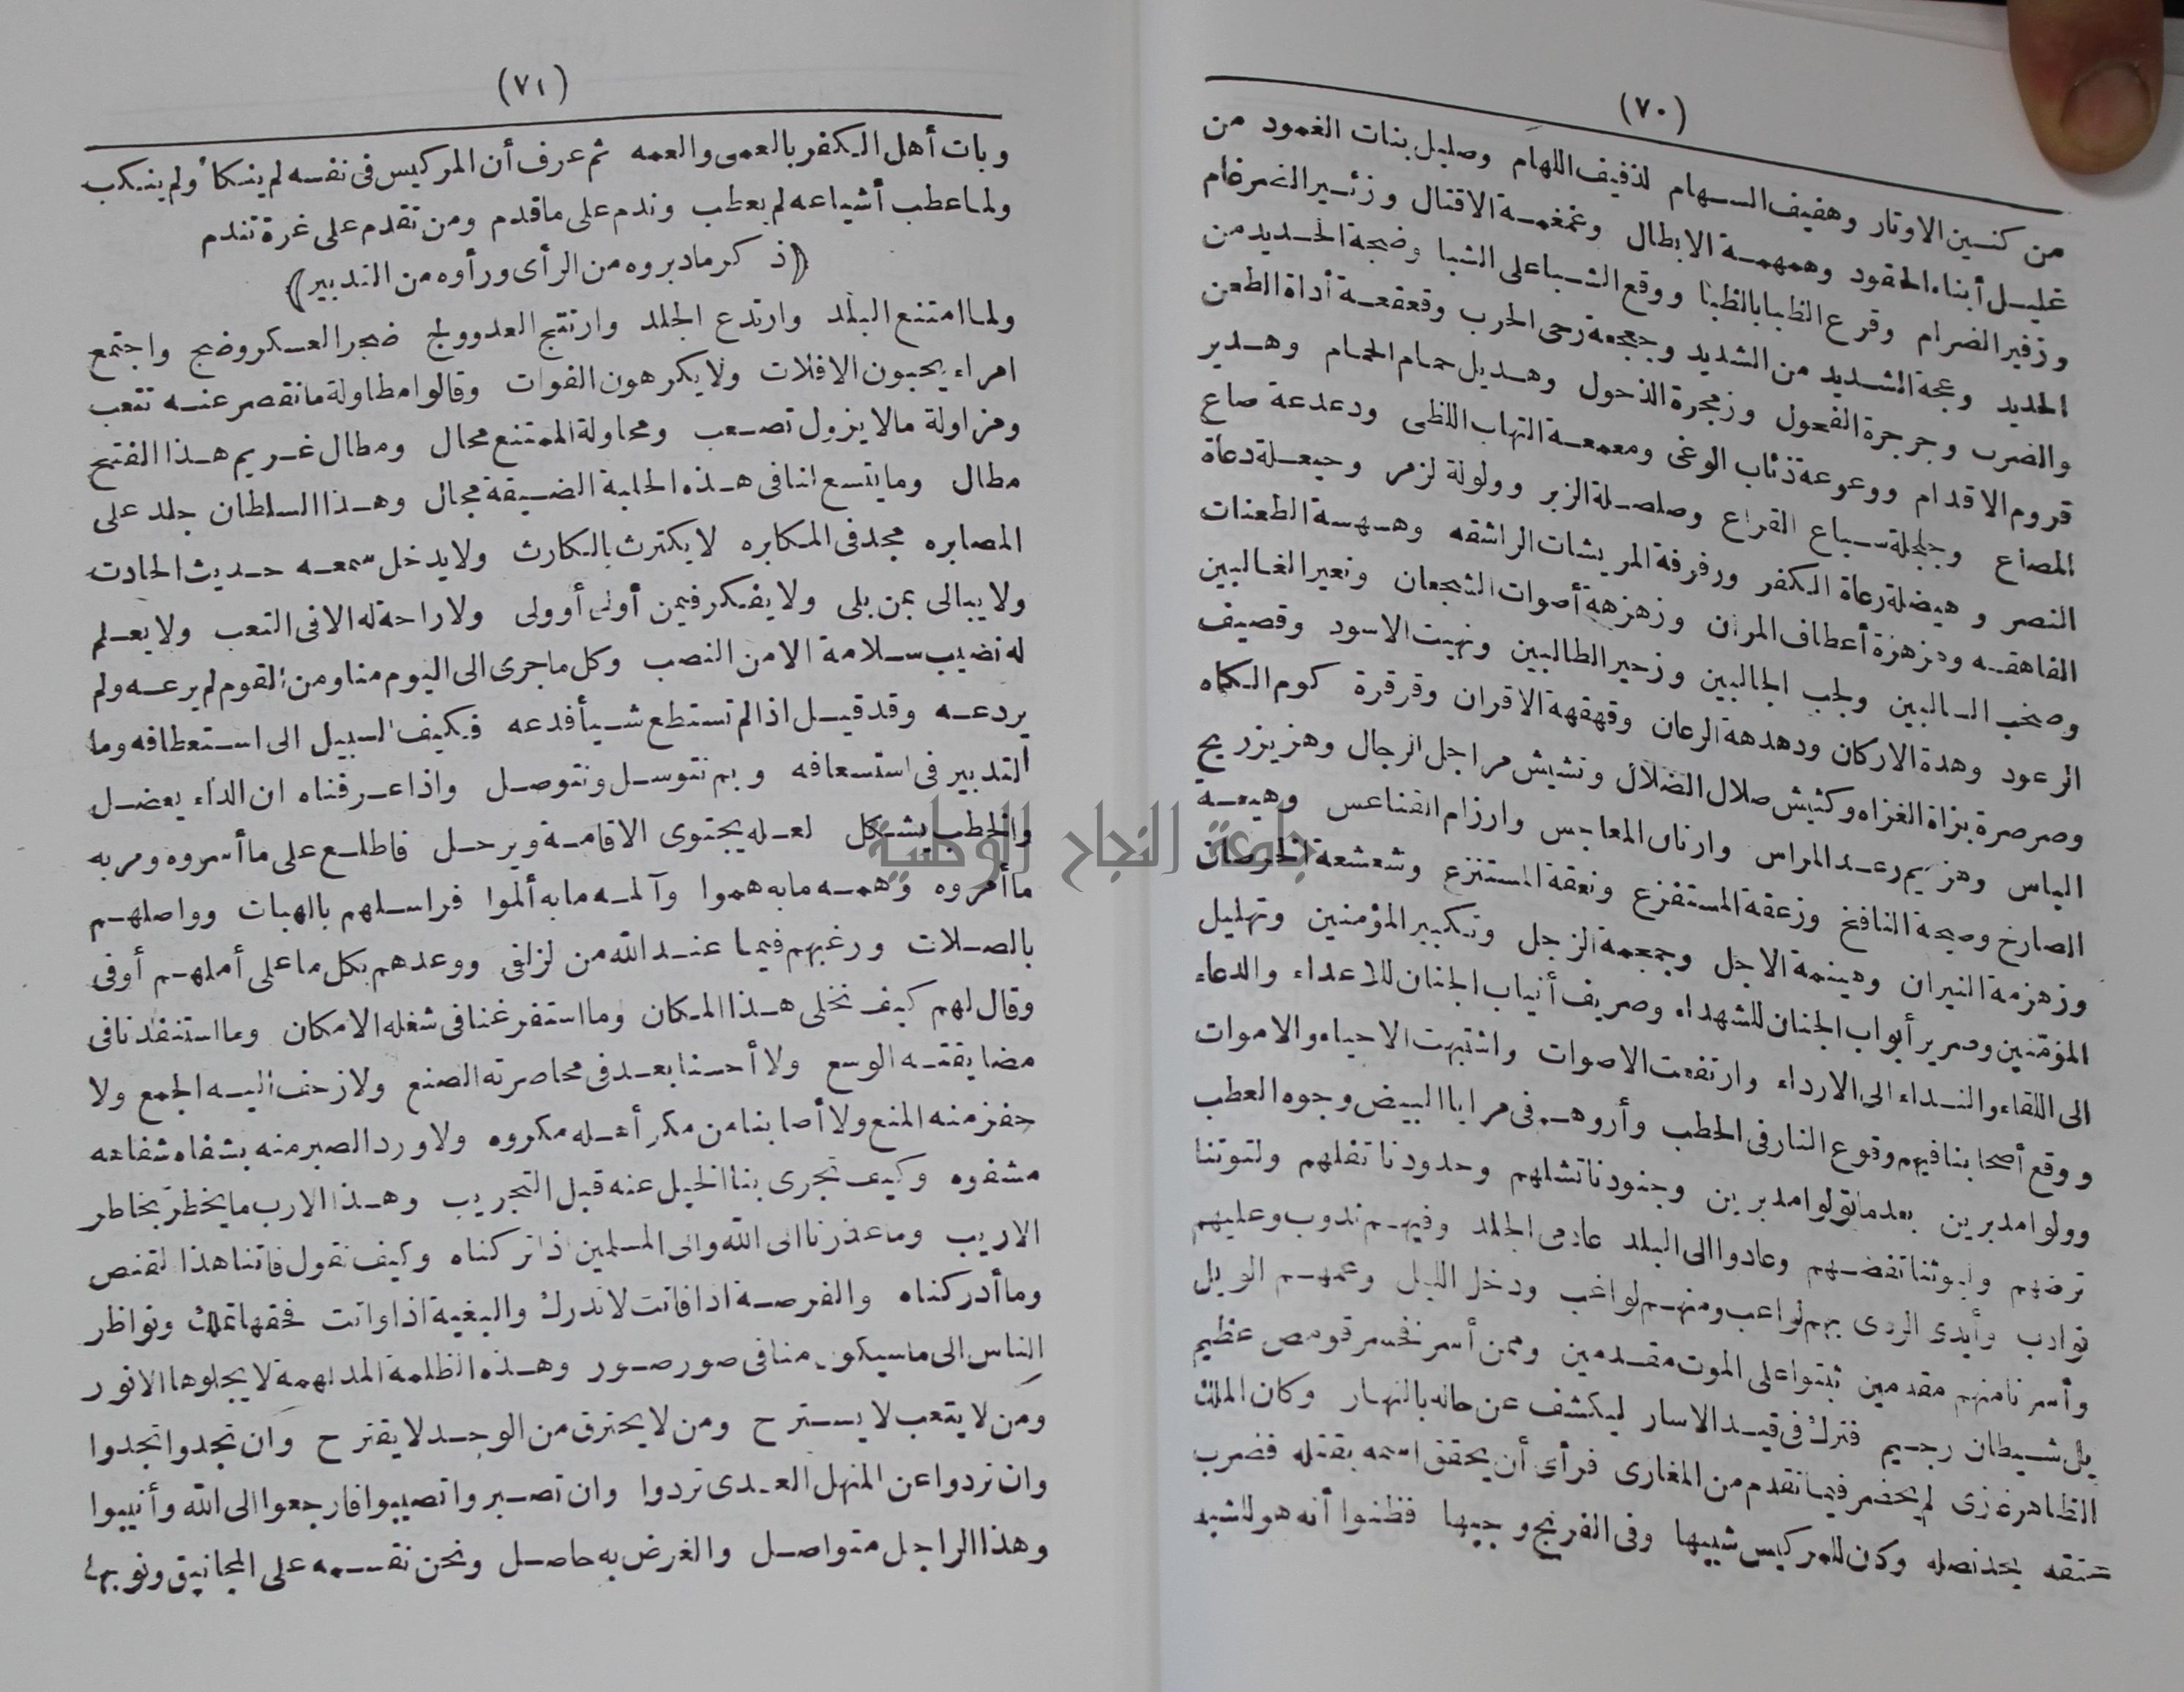 (٧٠)
من كنين الاوتار وهفيف السهام لذفيف اللهام وصليل بنات الغمود من
غليل أبناء الحقود وهمهمة الابطال وغمغمة الاقتال وزئير الضرغام
وزفير الضرام وقرع الظبا بالظبا ووقع الشبا على الشبا وضجة الحديد من
الحديد وعجة الشديد من الشديد وجعجعة رحى الحرب وقعقعة أداة الطعن
والضرب وجرجرة الفحول وزمجرة الذحول وهديل حمام الحمام وهدير
قروم الاقدام ووعوعة ذئاب الوغى ومعمعة التهاب اللظى ودعدعة صاع
المصاع وجلجلة سباع القراع وصلصلة الزبر وولولة لزمر وحيعلة دعاة
النصر وهيضلة رعاة الكفر ورفرفة المريشات الراشقه وهسهسة الطعنات
الفاهقه وهزهزة أعطاف المران وزهزهة أصوات الشجعان ونعير الغالبين
وصخب السالبين ولجب الجالبين وزحير الطالبين ونهيت الاسود وقصيف
الرعود وهدة الاركان ودهدهة الرعان وقهقهة الاقران وقرقرة كوم الكماه
وصرصرة بزاة الغزاه وكشيش صلال الضلال ونشيش مراجل الرجال وهزيز ريح
الباس وهزيم رعد المراس وارنان المعاجس وارزام القناعس وهيعة
الصارخ وصيحة النافخ وزعقة المستفزع ونعقة المستنزع وشعشعة الخرصان
وزهزمة النيران وهينمة الاجل وجمجمة الزجل وتكبير المؤمنين وتهليل
المؤمنين وصرير أبواب الجنان للشهداء وصريف أنياب الجنان للاعداء والدعاء
الى اللقاء والنداء الى الارداء وارتفعت الاصوات واشتبهت الاحياء والاموات
ووقع أصحابنا فيهم وقوع النار فى الحطب وأروهم فى مرايا البيض وجوه العطب
وولوا مدبرين بعد ما تولوا مدبرين وجنودنا تشلهم وحدودنا تفلهم ولتوتنا
ترضهم وليوثنا تفضهم وعادوا الى البلد عادمى الجلد وفيهم ندوب وعليهم
نوادب وأيدى الردى بهم لواعب ومنهم لواغب ودخل الليل وعمهم الويل
وأسرنا منهم مقدمين ثبتوا على الموت مقدمين وممن أسر نفسر قومص عظيم
بل شيطان رجيم فترك فى قيد الاسار ليكشف عن حاله بالنهار وكان الملك
الظاهر غازى لم يحضر فيما تقدم من المغازى فرأى أن يحقق اسمه بقتله فضرب
عنقه بحد نصله وكان للمركيس شبيها وفى الفرنج وجيها فظنوا أنه هو للشبه
(٧١)
وبات أهل الكفر بالعمى والعمه ثم عرف أن المركيس فى نفسه لم ينكأ ولم ينكب
ولما عطب أشياعه لم يعطب وندم على ما قدم ومن تقدم على غرة تندم
(ذكر ما دبروه من الرأى ورأوه من التدبير)
ولما امتنع البلد وارتدع الجلد وارتتج العدو ولج ضجر العسكر وضج واجتمع
امراء يحبون الافلات ولا يكرهون الفوات وقالوا مطاولة ما نقصر عنه تتعب
ومزاولة ما لا يزول تصعب ومحاولة الممتنع محال ومطال غريم هذا الفتح
مطال وما يتسع لنا فى هذه الحلبة الضيقة مجال وهذا السلطان جلد على
المصابره مجد فى المكابره لا يكترث بالكارث ولا يدخل سمعه حديث الحادث
ولا يبالى بمن بلى ولا يفكر فيمن أولى أو ولى ولا راحة له الا فى التعب ولا يعلم
له نصيب سلامة الا من النصب وكل ما جرى الى اليوم منا ومن القوم لم يرعه ولم
يردعه وقد قيل اذا لم تستطع شيأ فدعه فكيف السبيل الى استعطافه وما
التدبير فى استسعافه وبم نتوسل ونتوصل واذا عرفناه ان الداء يعضل
والخطب يشكل لعله يجتوى الاقامة ويرحل فاطلع على ما أسروه ومر به
ما أمروه وهمه ما به هموا وآلمه ما به ألموا فراسلهم بالهبات وواصلهم
بالصلات ورغبهم فيما عند الله من لزلفى ووعدهم بكل ما على أملهم أوفى
وقال لهم كيف نخلى هذا المكان وما استفرغنا فى شغله الامكان وما استنفدنا فى
مضايقته الوسع ولا أحسنا بعد فى محاصرته الصنع ولا زحف اليه الجمع ولا
حفز منه المنع ولا أصابنا من مكر أهله مكروه ولا ورد الصبر منه بشفاه شفاعه
مشفوه وكيف تجرى بنا الخيل عنه قبل التجريب وهذا الارب ما يخطر بخاطر
الاريب وما عذرنا الى الله والى المسلمين اذا تركناه وكيف نقول فاتنا هذا لقنص
وما أدركناه والفرصة اذا فاتت لا تدرك والبغية اذا واتت فحقها تملك ونواظر
الناس الى ما سيكون منا فى صور صور وهذه الظلمة المدلهمة لا يجلوها الا نور
ومن لا يتعب لا يستريح ومن لا يحترق من الوجد لا يقترح وان تجدوا تجدوا
وان نردوا عن المنهل العدى تردوا وان تصبروا تصيبوا فارجعوا الى الله وأنيبوا
وهذا الراجل متواصل والغرض به حاصل ونحن نقسمه على المجانيق ونوبها
جامعة النجاح الوطنية